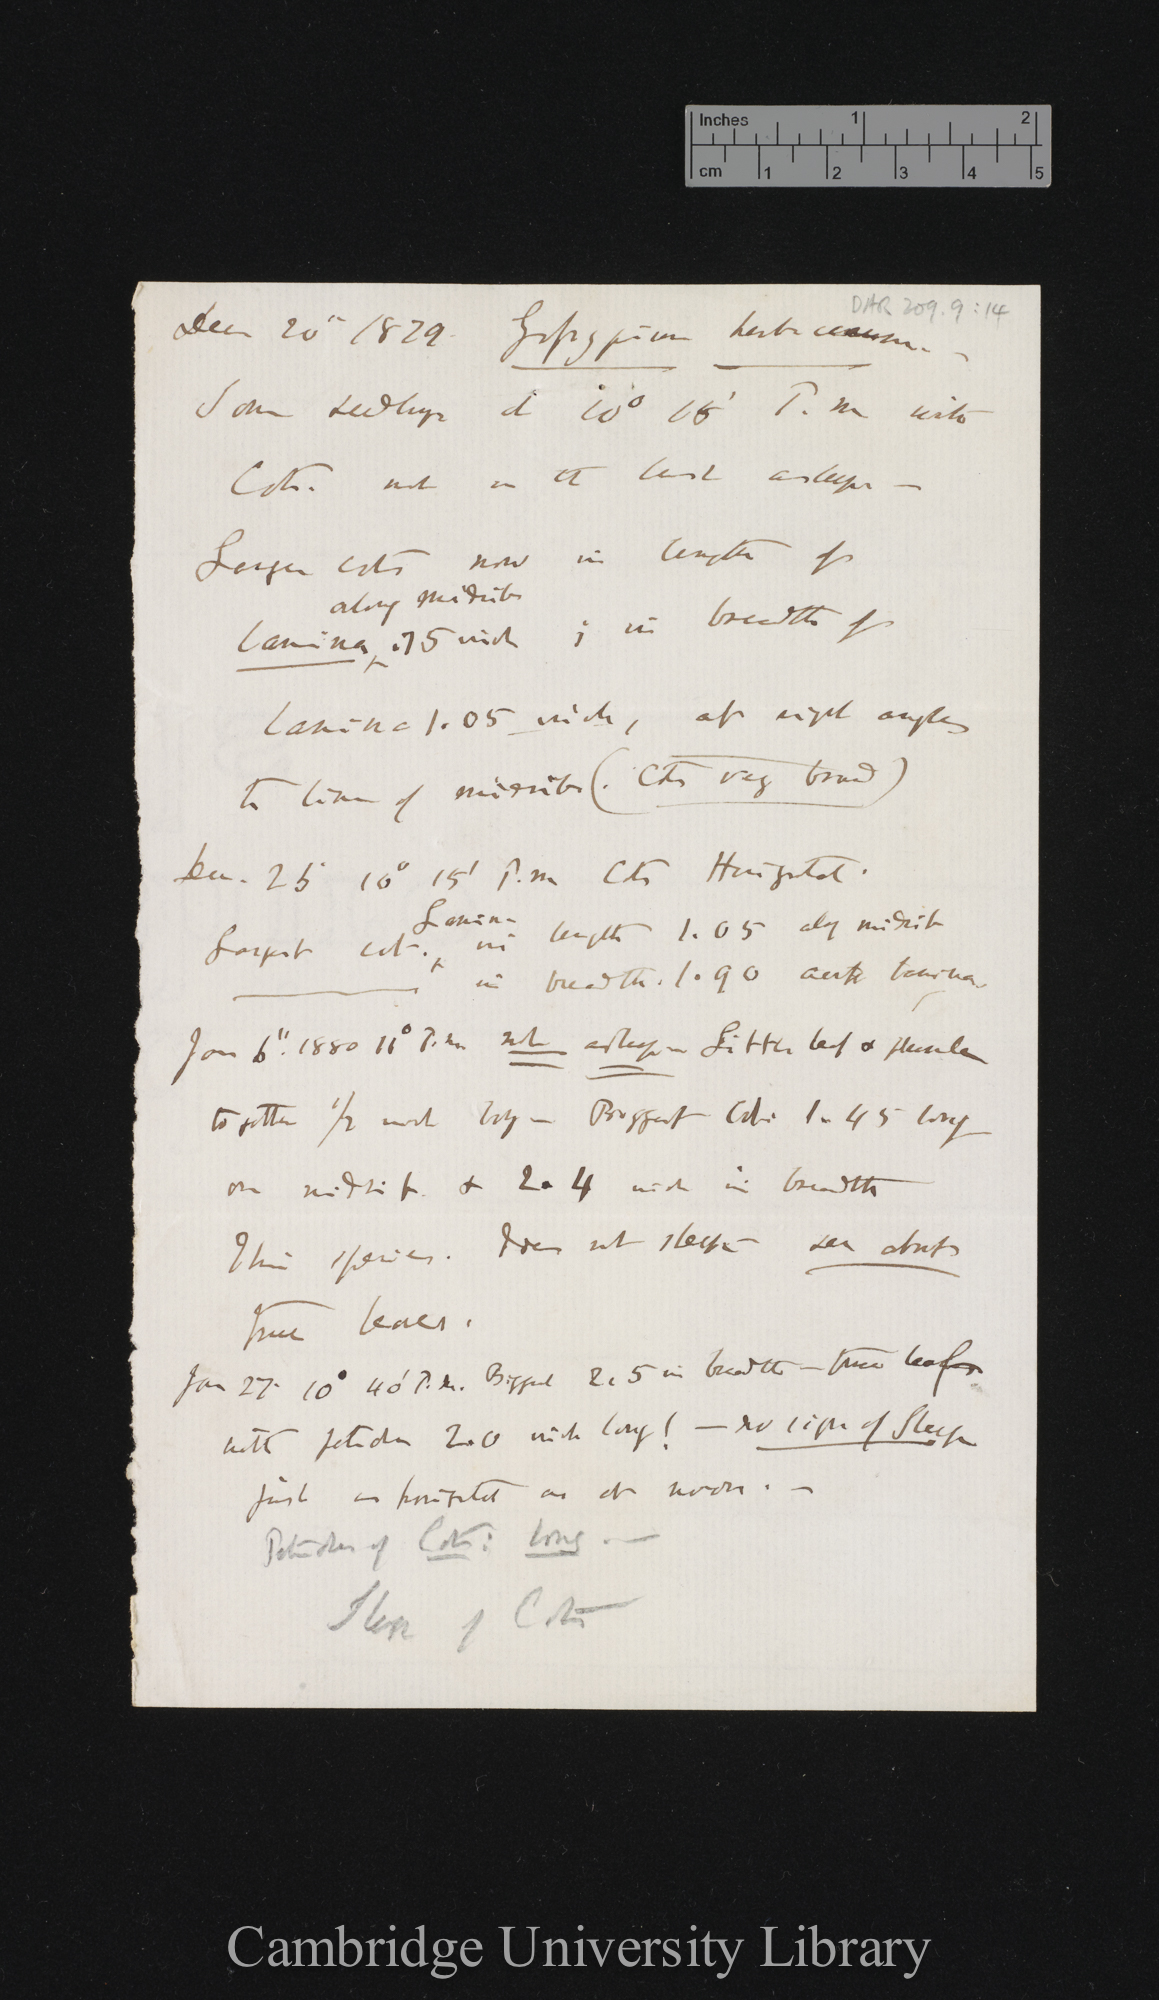 Inches 1 2
cm 1 2 3 4 5
DAR 209.9:14
Decr 20th 1879. Gossypium herbaceum. —
Some seedlings at 10° 15' P.m with
Cots. not in the least asleep —
Larger cots now in length of
along midrib
lamina .75 inch ; in breadth of
lamina 1.05 inch, at right angles
to line of midrib (. Cots very broad)
Dec. 25 10° 15' P.m Cots Horizontal.
Lamina
Largest cot. in length 1.05 along midrib
in breadth. 1.90 across lamina.
Jan 6th. 1880 11° P.m not asleep — Little leaf & plumule
together 1/2 inch long — Biggest Cots 1.45 long
on midrib. & 2.4 inch in breadth
This species. does not sleep — see about
true leaves.
Jan 27. 10° 40' P.m. Biggest 2.5 in breadth — true leaf
with petioles 2.0 inch long! — no sign of Sleep
just as horizontal as at noon. —
Petioles of Cots: long. —
Sleep of Cots
Cambridge University Library